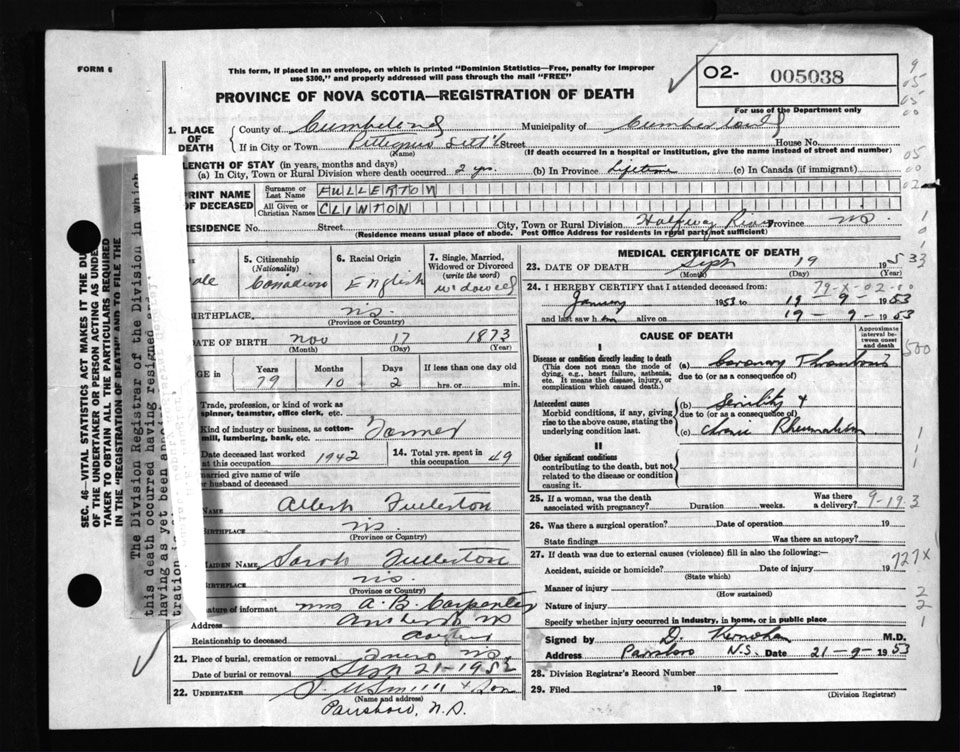 FORM 6
This form, if placed in an envelope, on which is printed "Dominion Statistics—Free, penalty for improper
use $300," and properly addressed will pass through the mail "FREE"
O2- 005038
For use of the Department only
PROVINCE OF NOVA SCOTIA—REGISTRATION OF DEATH
1. PLACE OF DEATH
County of Cumberland Municipality of Cumberland
If in City or Town Street House No.
(Name) (If death occurred in a hospital or institution, give the name instead of street and number)
LENGTH OF STAY (in years, months and days)
(a) In City, Town or Rural Division where death occurred. 2 yrs. (b) In Province Lifetime (c) In Canada (if immigrant)
PRINT NAME OF DECEASED
Surname or Last Name FULLERTON
All Given or Christian Names CLINTON
RESIDENCE No. Street City, Town or Rural Division Halfway River Province N.S.
(Residence means usual place of abode. Post Office Address for residents in rural parts not sufficient)
5. Citizenship (Nationality) Canadian
6. Racial Origin English
7. Single, Married, Widowed or Divorced (write the word) widowed
BIRTHPLACE N.S.
(Province or Country)
DATE OF BIRTH Nov 17 1873
(Month) (Day) (Year)
AGE in Years 79 Months 10 Days 2 If less than one day old hrs. or min.
Trade, profession, or kind of work as
spinner, teamster, office clerk, etc.
Kind of industry or business, as cotton-
mill, lumbering, bank, etc. Farmer
Date deceased last worked at this occupation 1942 14. Total yrs. spent in this occupation 49
married give name of wife
or husband of deceased
NAME Albert Fullerton
BIRTHPLACE N.S.
(Province or Country)
MAIDEN NAME Sarah Fullerton
BIRTHPLACE N.S.
(Province or Country)
Signature of informant Mrs A. B. Carpenter
Address Amherst NS
Relationship to deceased
21. Place of burial, cremation or removal Truro N.S.
Date of burial or removal Sept 21-1953
22. UNDERTAKER & Son
(Name and address)
Parrsboro, N.S.
MEDICAL CERTIFICATE OF DEATH
23. DATE OF DEATH Sept 19 1953
(Month) (Day) (Year)
24. I HEREBY CERTIFY that I attended deceased from:
79-X-02-00
January 1953 to 19 - 9 - 1953
and last saw him alive on 19 - 9 - 1953
CAUSE OF DEATH
Approximate interval between onset and death
I
Disease or condition directly leading to death
(This does not mean the mode of dying, e.g., heart failure, asthenia, etc. It means the disease, injury, or complication which caused death.)
(a) Coronary Thrombosis
due to (or as a consequence of)
Antecedent causes
Morbid conditions, if any, giving rise to the above cause, stating the underlying condition last.
(b) Senility &
due to (or as a consequence of)
(c) Chronic Rheumatism
II
Other significant conditions
contributing to the death, but not related to the disease or condition causing it.
25. If a woman, was the death associated with pregnancy? Duration weeks. Was there a delivery?
9-19.3
26. Was there a surgical operation? Date of operation 19
State findings Was there an autopsy?
27. If death was due to external causes (violence) fill in also the following:
Accident, suicide or homicide? Date of injury 19
(State which)
Manner of injury
(How sustained)
Nature of injury
Specify whether injury occurred in industry, in home, or in public place
Signed by M.D.
Address Parrsboro N.S. Date 21-9-1953
28. Division Registrar's Record Number
29. Filed 19
(Division Registrar)
SEC. 46—VITAL STATISTICS ACT MAKES IT THE DU
OF THE UNDERTAKER OR PERSON ACTING AS UNDE
TAKER TO OBTAIN ALL THE PARTICULARS REQUIRED
IN THE "REGISTRATION OF DEATH" AND TO FILE THE
The Division Registrar of the Division in which
this death occurred having resigned and
having as yet been